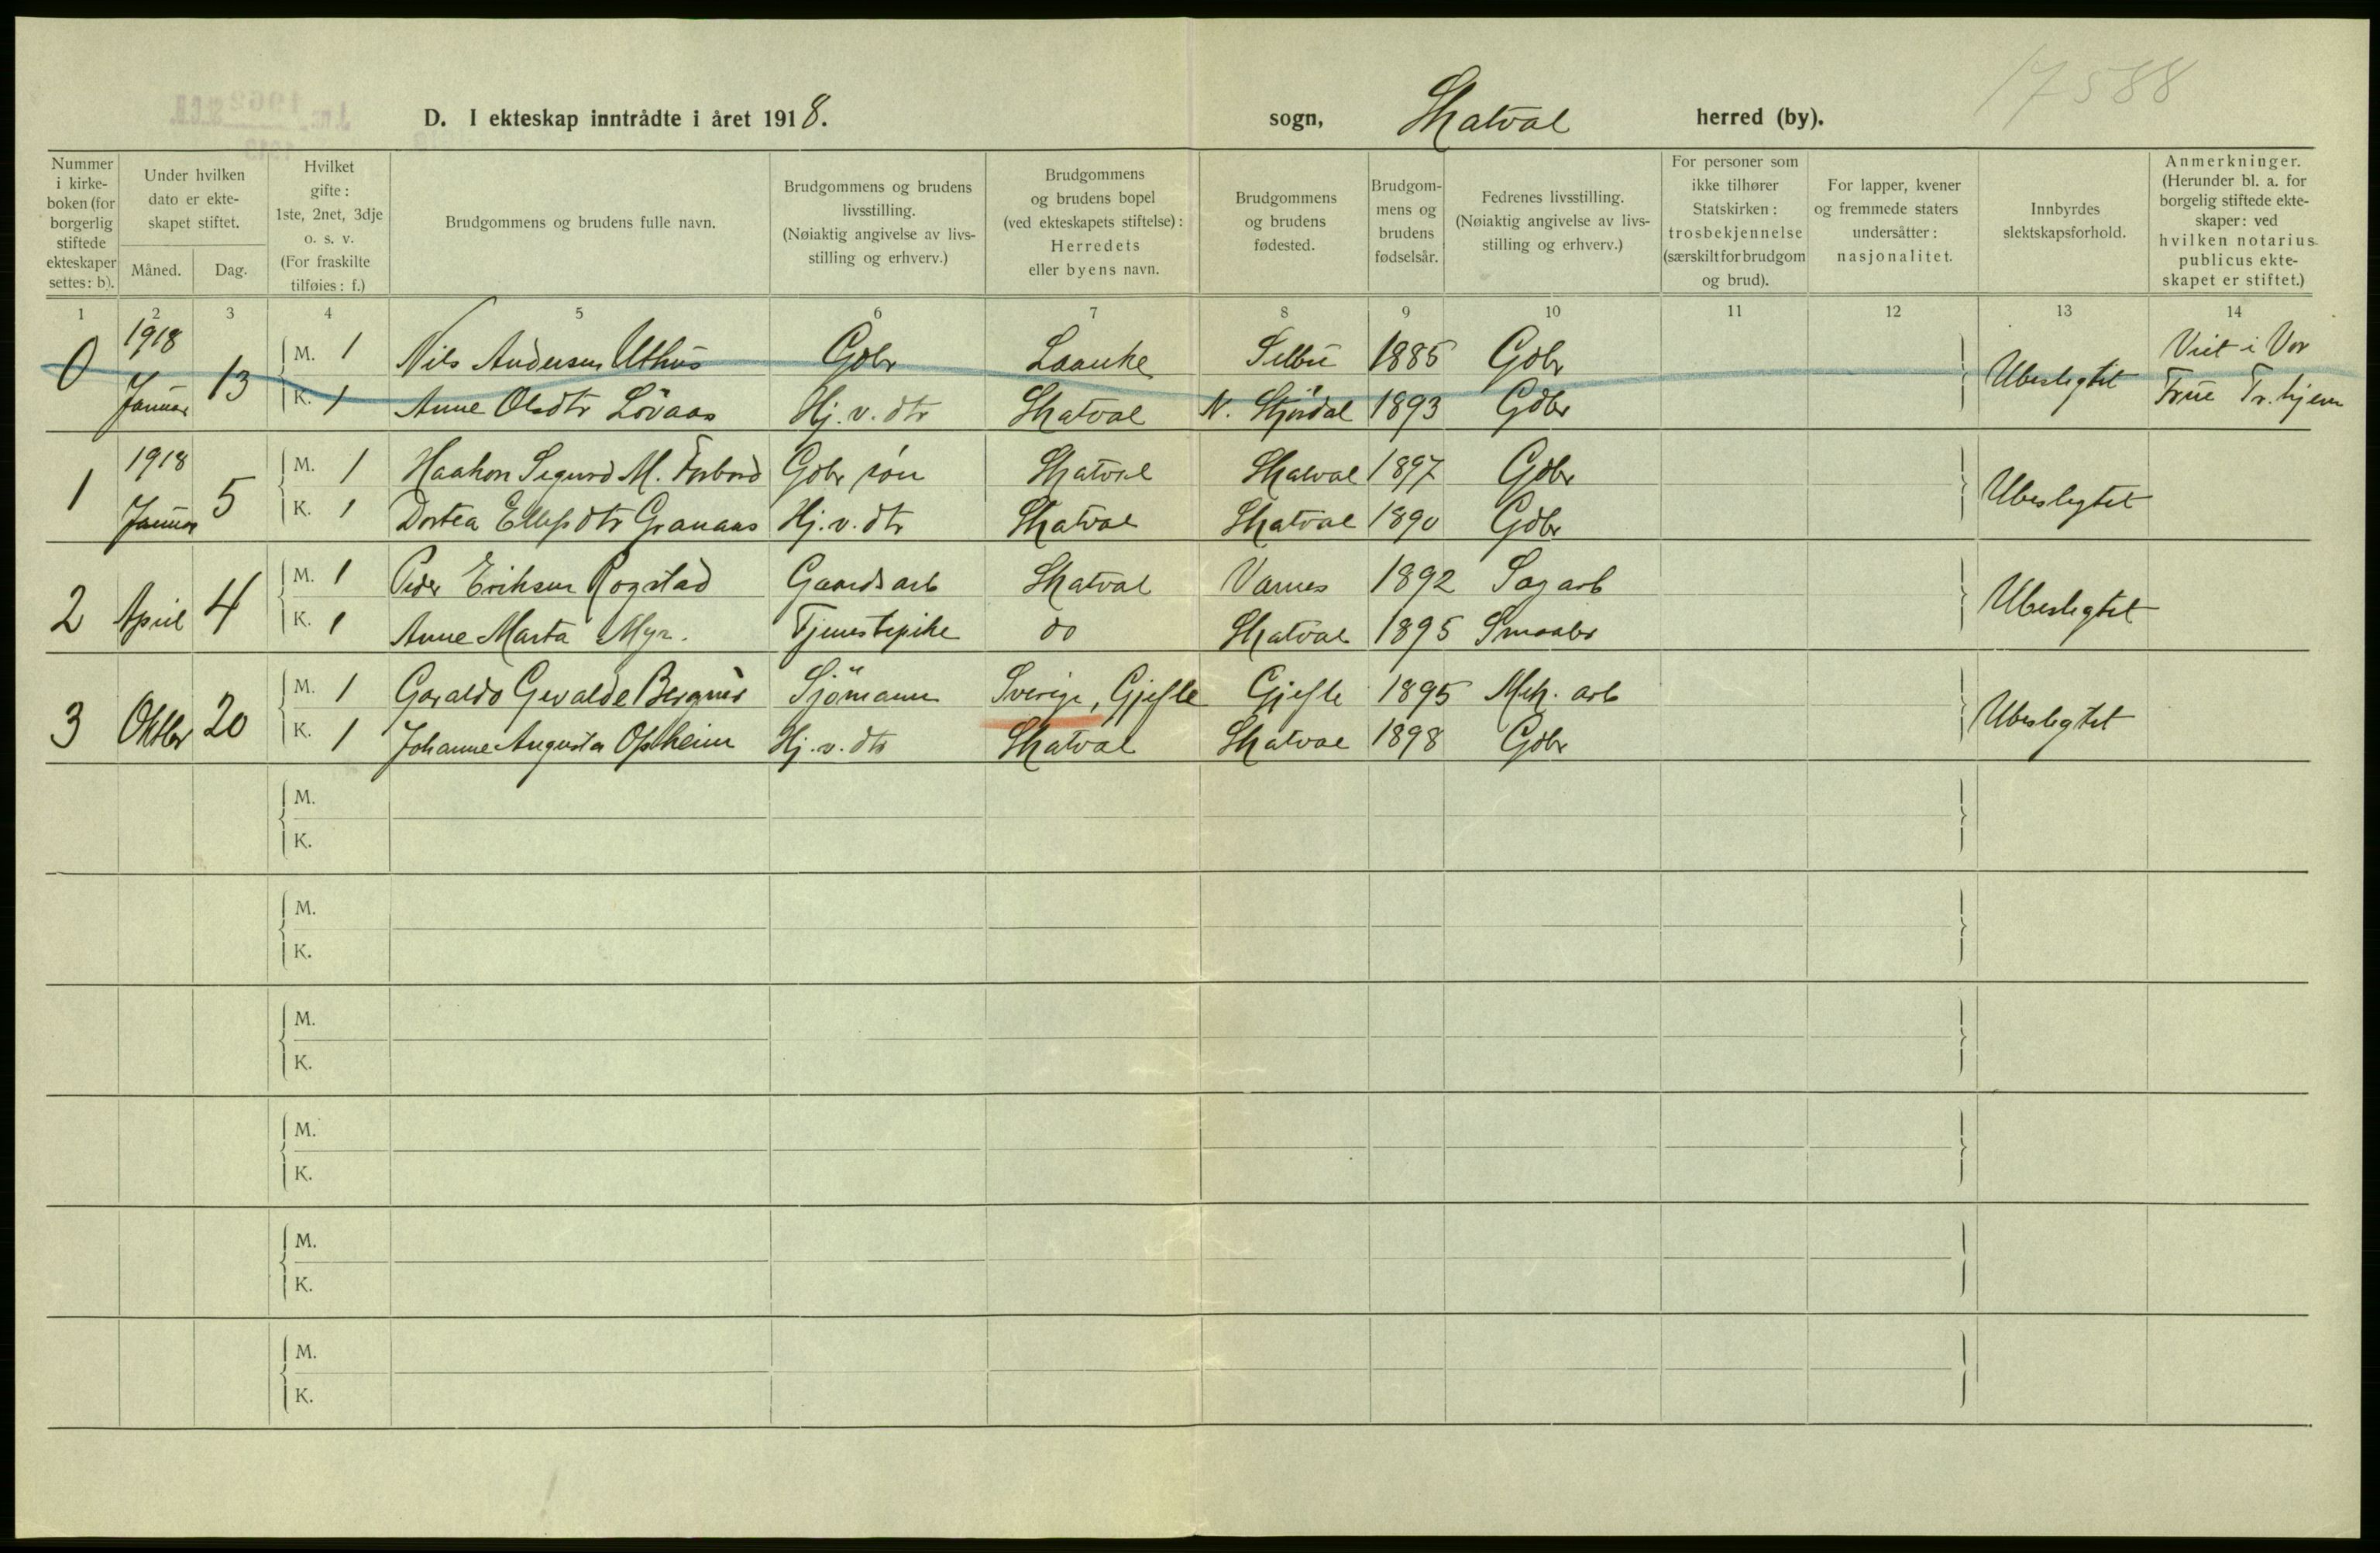 17588
D. I ekteskap inntrådte i året 1918. sogn, Skatval herred (by).
Nummer i kirke-boken (for borgerlig stiftede ekteskaper settes: b).
Under hvilken dato er ekte-skapet stiftet.
Måned. Dag.
Hvilket gifte: 1ste, 2net, 3dje o. s. v. (For fraskilte tilføies: f.)
Brudgommens og brudens fulle navn.
Brudgommens og brudens livsstilling. (Nøiaktig angivelse av livs-stilling og erhverv.)
Brudgommens og brudens bopel (ved ekteskapets stiftelse): Herredets eller byens navn.
Brudgommens og brudens fødested.
Brudgom-mens og brudens fødselsår.
Fedrenes livsstilling. (Nøiaktig angivelse av livs-stilling og erhverv.)
For personer som ikke tilhører Statskirken: trosbekjennelse (særskilt for brudgom og brud).
For lapper, kvener og fremmede staters undersåtter: nasjonalitet.
Innbyrdes slektskapsforhold.
Anmerkninger. (Herunder bl. a. for borgelig stiftede ekte-skaper: ved hvilken notarius publicus ekte-skapet er stiftet.)
1 2 3 4 5 6 7 8 9 10 11 12 13 14
0 1918 Januar 13 M. 1 Nils Andersen Uthus Gdbr Laanke Selbu 1885 Gdbr Ubeslegtet Viet i Vor
K. 1 Anne Olsdtr Lövaas Hj. v. dtr Skatval N. Stjördal 1893 Gdbr Frue Tr.hjem
1 1918 Januar 5 M. 1 Haakon Sigurd M. Forbord Gdbr sön Skatval Skatval 1897 Gdbr Ubeslegtet
K. 1 Dortea Ellefsdtr Granaas Hj. v. dtr Skatval Skatval 1890 Gdbr
2 April 4 M. 1 Peder Eriksen Rogstad Gaardsarb Skatval Værnes 1892 Sagarb Ubeslegtet
K. 1 Anne Marta Myr. Tjenestepike do Skatval 1895 Smaabr
3 Oktbr 20 M. 1 Gevalde Bergner Sjömann Sverige, Gjefle Gjefle 1895 Mek. arb Ubeslegtet
K. 1 Johanne Augusta Opheim Hj. v. dtr Skatval Skatval 1898 Gdbr
M.
K.
M.
K.
M.
K.
M.
K.
M.
K.
M.
K.